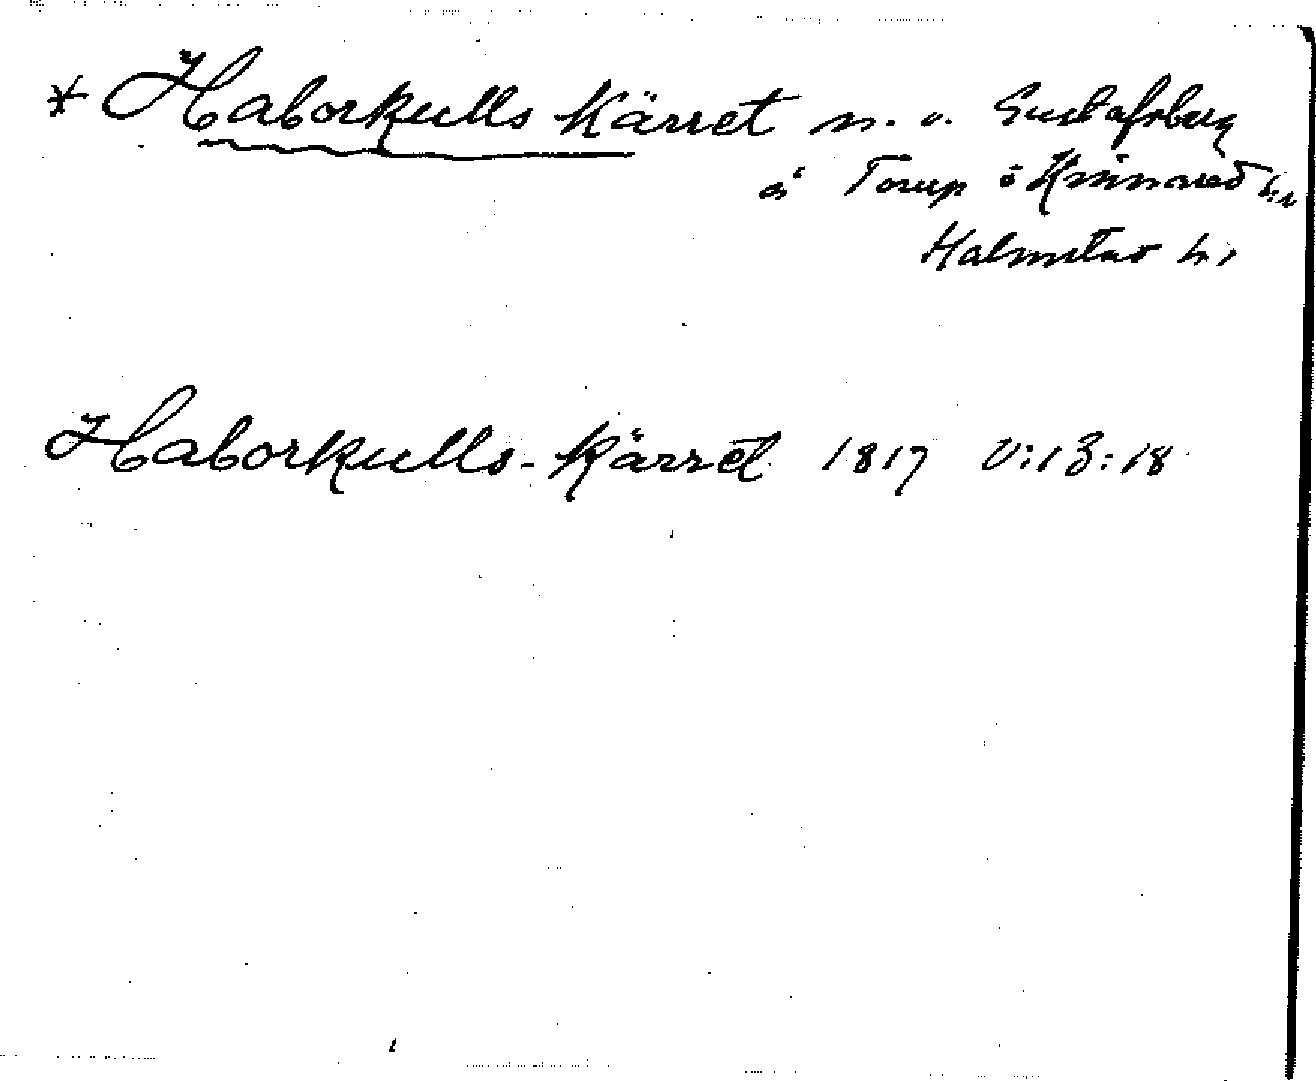 * Haborkulls Kärret n. v. Gustafsberg
å Torup i Kinnared sn
Halmstad h.
Haborkulls-Kärret 1817 V:13:18